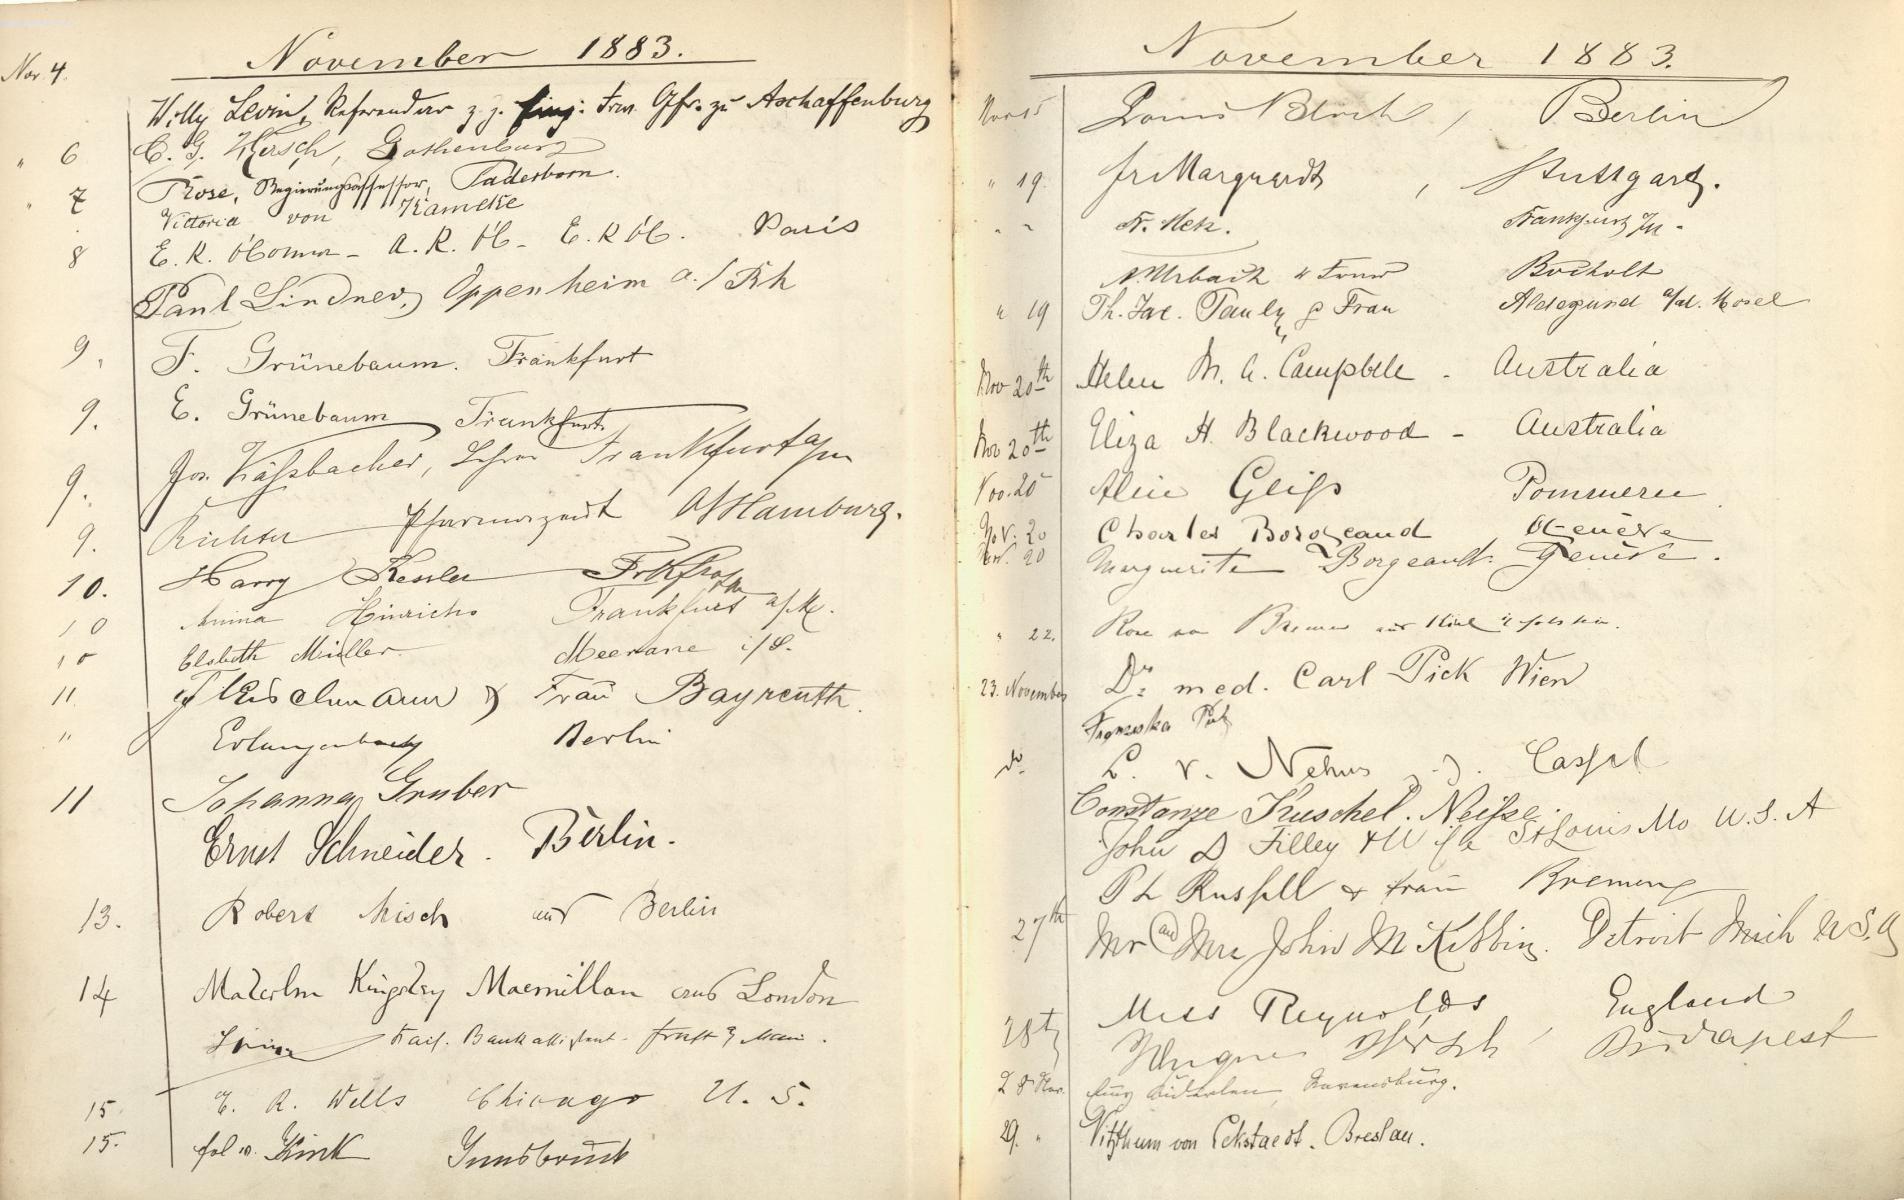 November 1883.
Nov. 4.
Willy Levin, Referendar z. Z. Aschaffenburg
" 6 C. G. Hirsch, Gothenburg
" 7 Rose, Regierungsassessor, Paderborn.
Victoria von Kameke
8 E. R. O'Connor - A. R. O'C - E. R O'C. Paris
Paul Lindner, Oppenheim a./Rh
9. F. Grünebaum. Frankfurt
9. E. Grünebaum Frankfurt
9. Jos. Käßbacher, Frankfurt a/m
9. Richter Hamburg.
10. Harry Kessler
10 Anna Hinrichs Frankfurt a/M.
10 Elsbeth Müller Meerane i/S.
11 Fleischmann & Frau Bayreuth.
" Berlin
11 Johanna Gruber
Ernst Schneider. Berlin.
13. Robert Misch aus Berlin
14 Malcolm Kingsley Macmillan aus London
15. E. A. Wells Chicago U. S.
15. Kink Innsbruck
November 1883.
Nov 15 Louis Bloch, Berlin
" 19. Fr Marquardt, Stuttgart.
" " Fr. Frankfurt a/M.
N. Urbach u Frau Bocholt
" 19 Th. Jac. Pauly & Frau Aldegund a/d. Mosel
Nov 20th Helen M. A. Campbell - Australia
Nov 20th Eliza H. Blackwood - Australia
Nov. 20 Alice Gliß Pommern
Nov. 20 Charles Borgeaud Genève
Nov. 20 Marguerite Borgeaud. Genève.
" 22. Rose Bremen aus Kiel
23. November Dr med. Carl Pick Wien
Franziska Pick
do L. v. Cassel
Constanze Kuschel. Neisse.
John D Filley & Wife St Louis Mo U. S. A
Russell & Frau Bremen
27th Mr and Mrs John McKibbin. Detroit Mich U.S.A
Miss Reynolds England
28th Hirsch Budapest
28 Nov. Ravensburg.
29. " Vitzthum von Eckstaedt. Breslau.